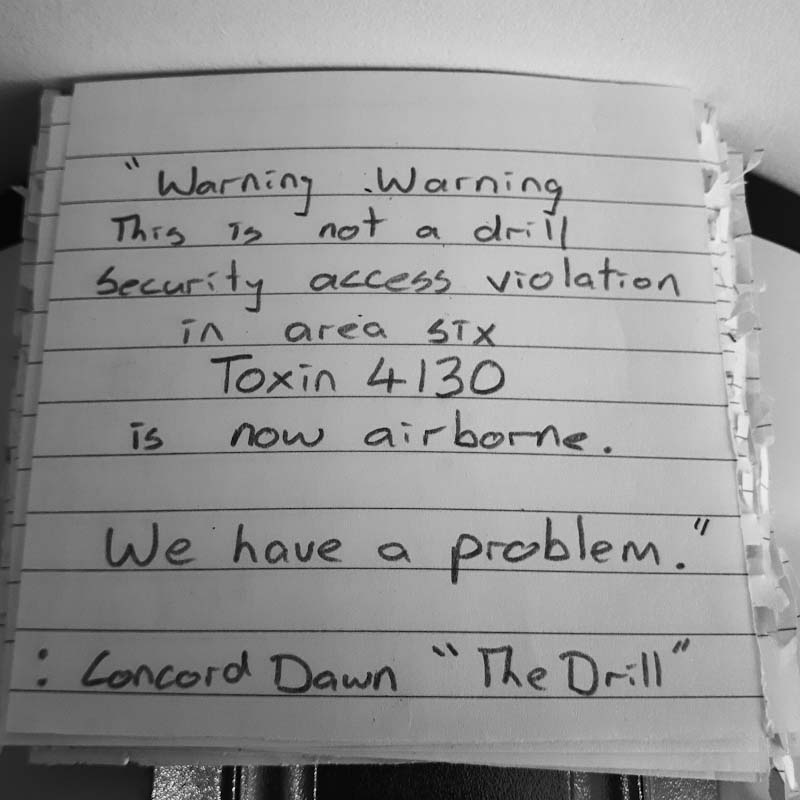 "Warning .Warning
This is not a drill
Security access violation
in area six
Toxin 4130
is now airborne.
We have a problem."
: Concord Dawn "The Drill"